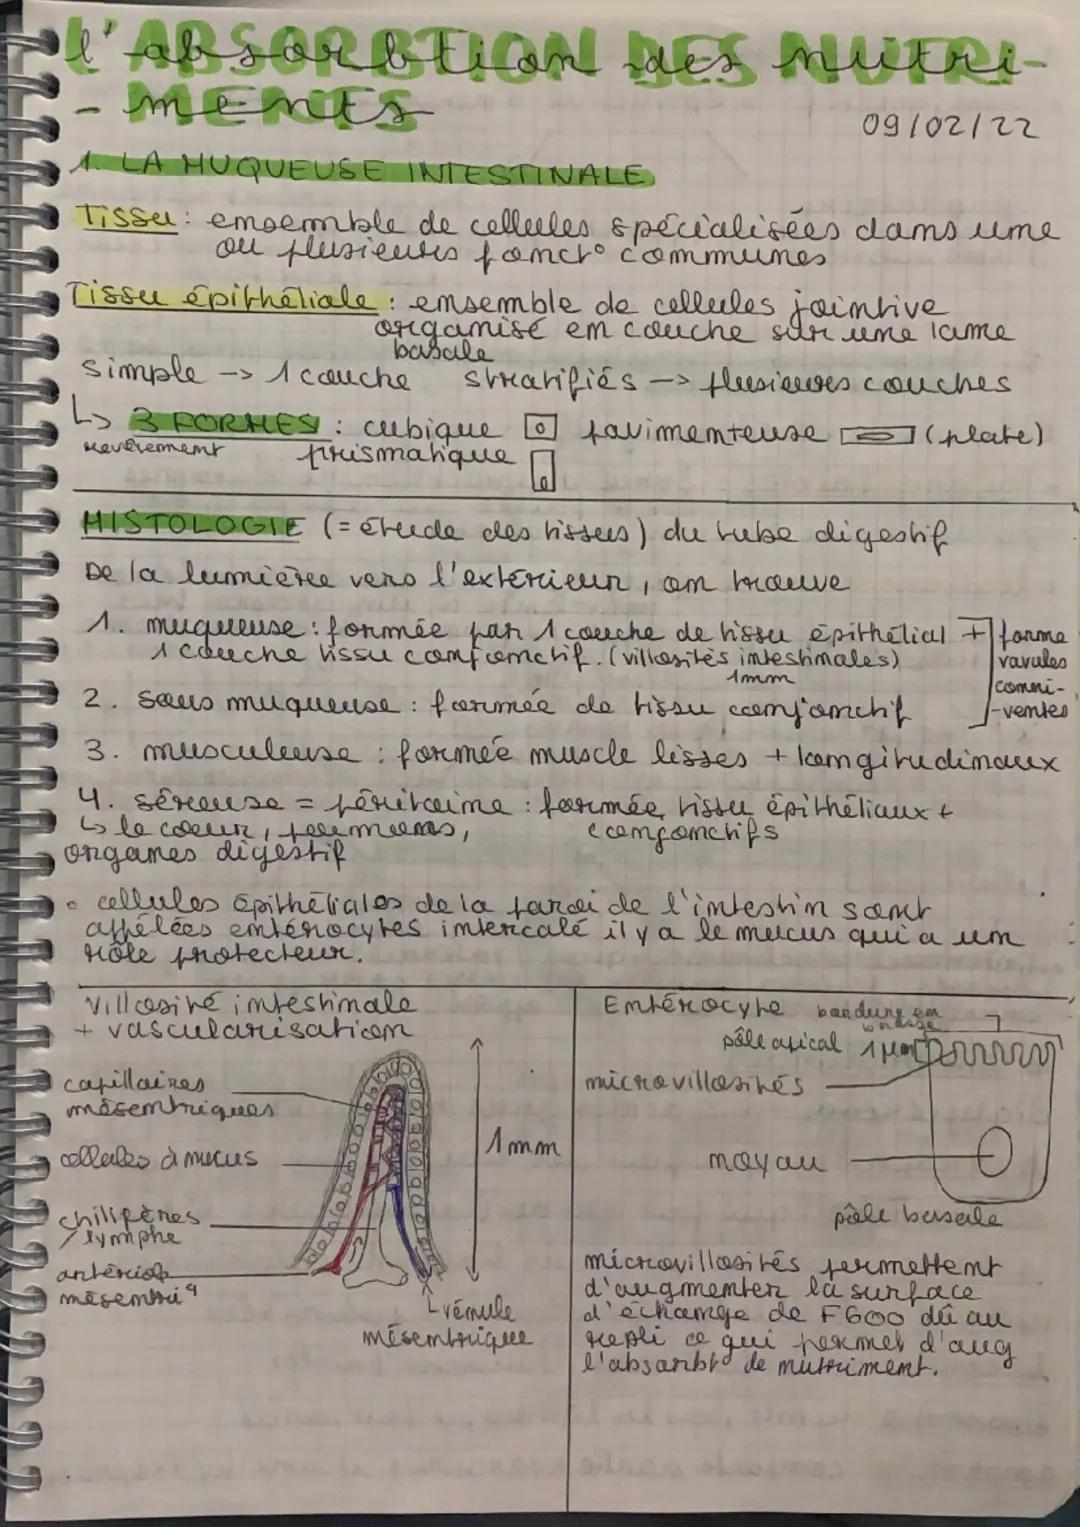 l'ABSORBTION DES NUTRI-
-MENTS
09/02/22
1. LA MUQUEUSE INTESTINALE
Tissu : ensemble de cellules spécialisées dans une
ou plusieurs fonct° communes
Tissu épithéliale : ensemble de cellules jointive
organisé en couche sur une lame
basale
simple -> 1 couche stratifiés -> plusieures couches
↳ 3 FORMES : cubique pavimenteuse (plate)
revêrement prismatique
HISTOLOGIE (= étude des tissus) du tube digestif
De la lumière vers l'extérieur, on trouve
1. muqueuse : formée par 1 couche de tissu épithélial +
1 couche tissu conjonctif. (villosités intestinales)
1mm
forme
vavules
conni-
-ventes
2. sous muqueuse : formée de tissu conjonctif
3. musculeuse : formée muscle lisses + longitudinaux
4. séreuse = péritoine : formée tissu épithéliaux +
conjonctifs
↳ le coeur, poumons,
organes digestif
• cellules épithéliales de la paroi de l'intestin sont
appélées entérocytes intercalé il y a le mucus qui a un
rôle protecteur.
villosité intestinale
+ vascularisation
capillaires
mésentriques
cellules à mucus
chilifères
/lymphe
artériole
mésentriq
1mm
vénule
mésentrique
Entérocyte
bordure en
brosse
pôle apical 1 µm
microvillosités
noyau
pôle basale
microvillosités permettent
d'augmenter la surface
d'échange de F600 dû au
repli ce qui permet d'aug
l'absorbt° de nutriment.